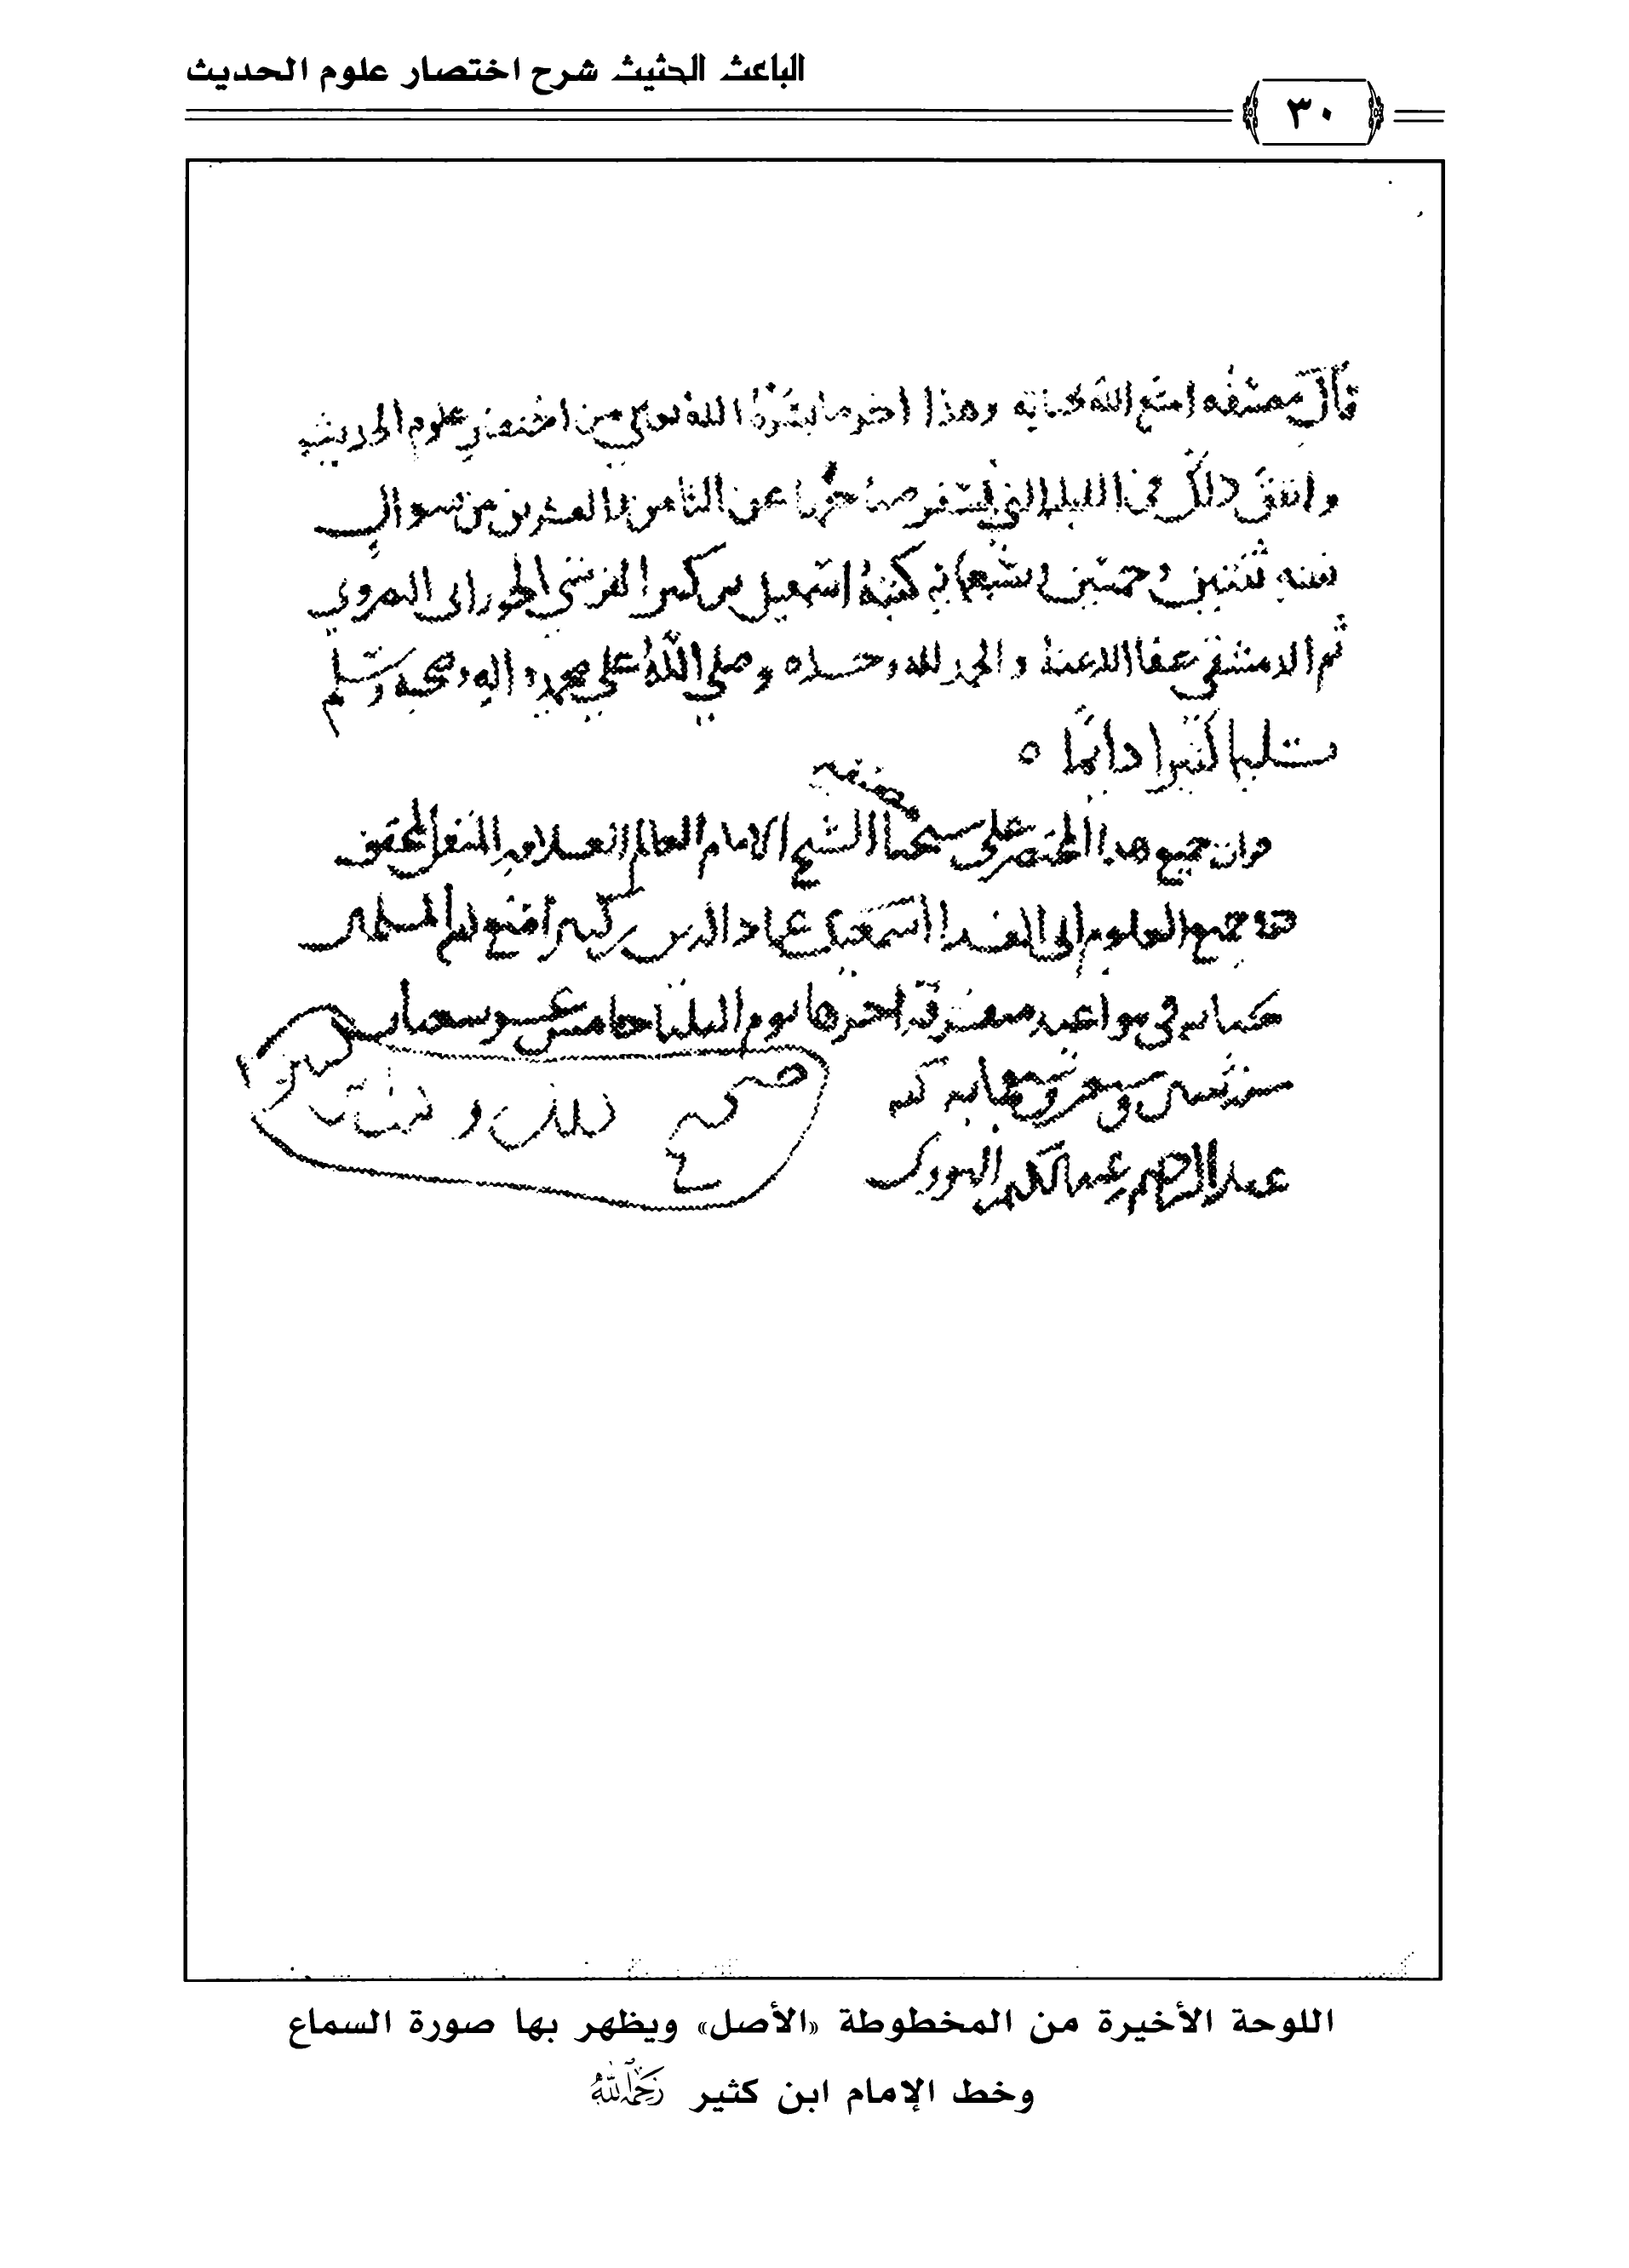 الباعث الحثيث شرح اختصار علوم الحديث
٣٠
قال مصنفه امتع الله بحياته وهذا اخر ما يسره الله تعالى من اختصار علوم الحديث
واتفق ذلك في الليلة التي يسفر صباحها عن الثامن والعشرين من شوال
سنة ثنتين وخمسين وسبعمايه كتبه اسمعيل بن كثير القرشي الحوراني البصروي
ثم الدمشقي عفا الله عنه والحمد لله وحده وصلى الله على محمد واله وصحبه وسلم
تسليما كثيرا دايما ه
مصنفه
قرات جميع هذا المختصر على شيخنا الشيخ الامام العالم العلامه المتقن المحقق
جميع العلوم ابي الفدا اسمعيل عماد الدين بن كثير امتع الله المسلمين
بحياته في مواعيد متفرقة اخرها يوم الثلثا خامس عشر شعبان
سنة وسبعمايه كتبه
عبد الرحيم
صحيح ذلك وكتب
بن كثير
اللوحة الأخيرة من المخطوطة «الأصل» ويظهر بها صورة السماع
وخط الإمام ابن كثير رحمه الله